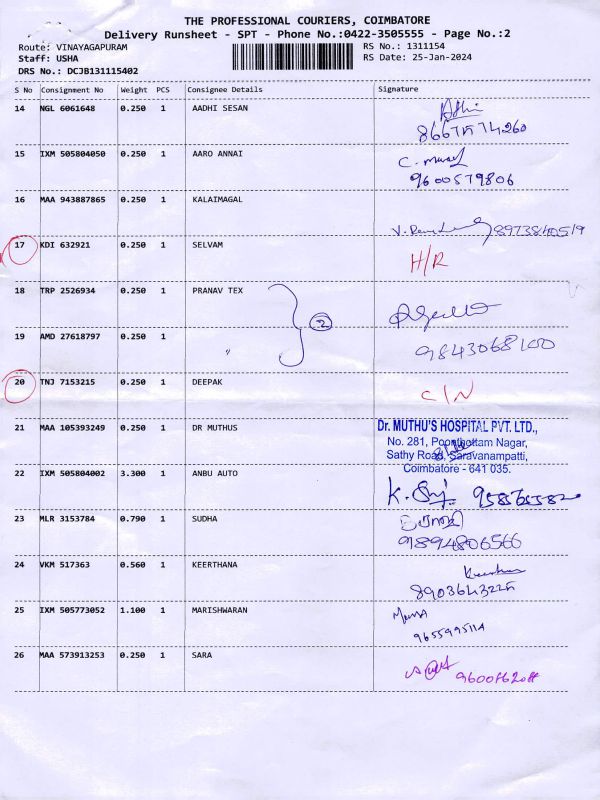 THE PROFESSIONAL COURIERS, COIMBATORE
Delivery Runsheet - SPT - Phone No.:0422-3505555 - Page No.:2
Route: VINAYAGAPURAM RS No.: 1311154
Staff: USHA RS Date: 25-Jan-2024
DRS No.: DCJB131115402
S No Consignment No Weight PCS Consignee Details Signature
14 NGL 6061648 0.250 1 AADHI SESAN
15 IXM 505804050 0.250 1 AARO ANNAI
9600579806
16 MAA 943887865 0.250 1 KALAIMAGAL
17 KDI 632921 0.250 1 SELVAM H/R
18 TRP 2526934 0.250 1 PRANAV TEX
2
19 AMD 27618797 0.250 1 "
20 TNJ 7153215 0.250 1 DEEPAK C/N
21 MAA 105393249 0.250 1 DR MUTHUS Dr. MUTHU'S HOSPITAL PVT. LTD.,
No. 281, Poonthottam Nagar,
Sathy Road, Saravanampatti,
Coimbatore - 641 035.
22 IXM 505804002 3.300 1 ANBU AUTO
23 MLR 3153784 0.790 1 SUDHA
9894806566
24 VKM 517363 0.560 1 KEERTHANA
25 IXM 505773052 1.100 1 MARISHWARAN
26 MAA 573913253 0.250 1 SARA